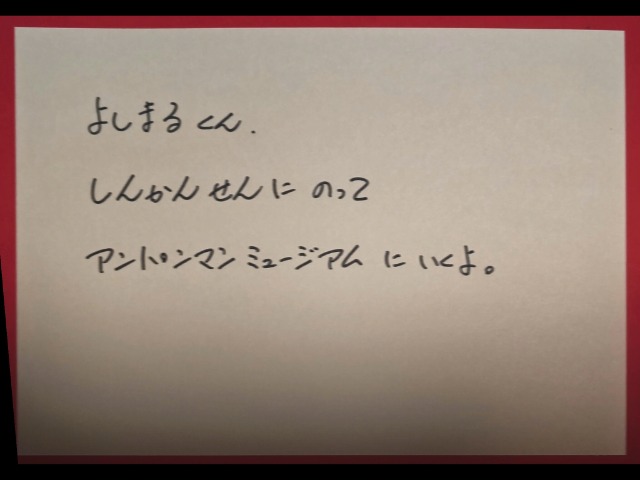 よしまるくん.
しんかんせんに のって
アンパンマンミュージアム に いくよ。